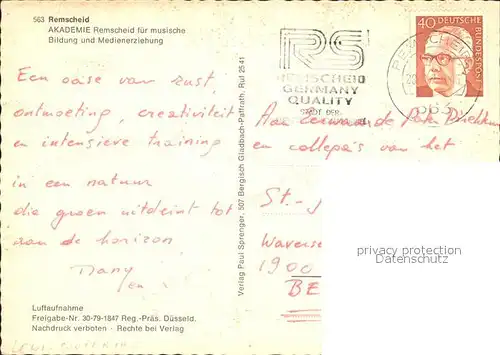 563 Remscheid
AKADEMIE Remscheid für musische
Bildung und Medienerziehung
Een oase van rust,
ontmoeting, creativiteit
en intensieve training
in een natuur
die groen uitdeint tot
aan de horizon
Dany
Luftaufnahme
Freigabe-Nr. 30-79-1847 Reg.-Präs. Düsseld.
Nachdruck verboten - Rechte bei Verlag
Verlag Paul Sprenger, 507 Bergisch Gladbach-Paffrath, Ruf 25 41
RS
REMSCHEID
GERMANY
QUALITY
STADT DER
REMSCHEID
563
40 DEUTSCHE
BUNDESPOST
Aan Eerwaarde Pater Direkteur
en collega's van het
St.-J
Waverse
1900
BE
privacy protection
Datenschutz